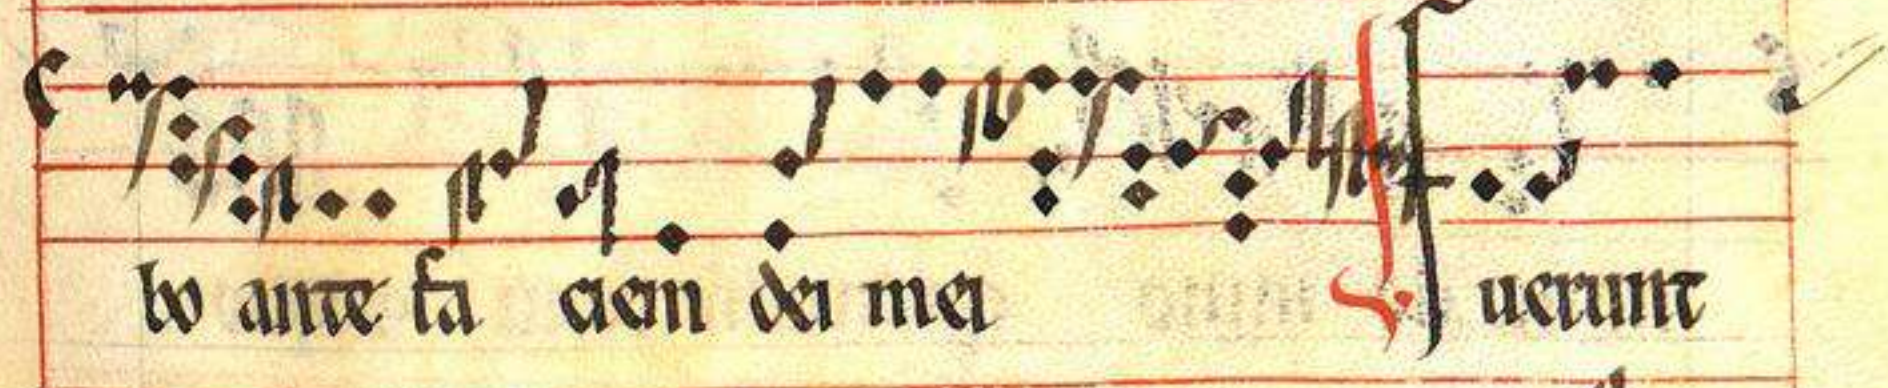 bo ante fa ciem dei mei ℣. Fuerunt